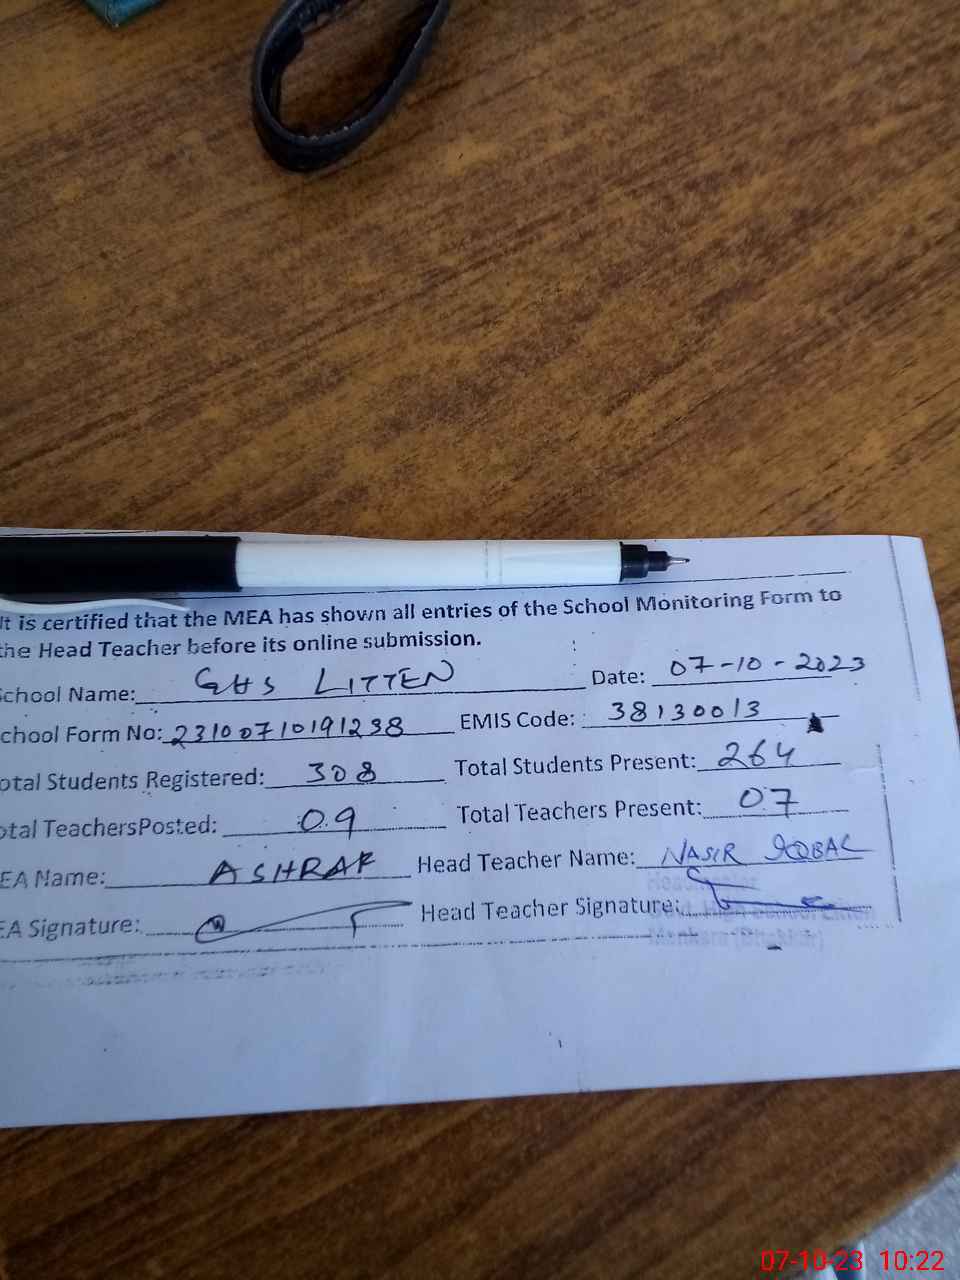 It is certified that the MEA has shown all entries of the School Monitoring Form to
the Head Teacher before its online submission.
School Name: GHS LITTEN Date: 07-10-2023
chool Form No: 23100710191238 EMIS Code: 38130013
otal Students Registered: 308 Total Students Present: 264
otal TeachersPosted: 09 Total Teachers Present: 07
EA Name: ASHRAF Head Teacher Name: NASIR IQBAL
EA Signature: Head Teacher Signature:
07-10-23 10:22